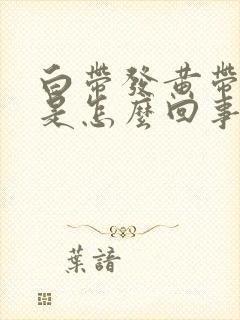 白帶發黃帶
是怎麼回事
葉諳